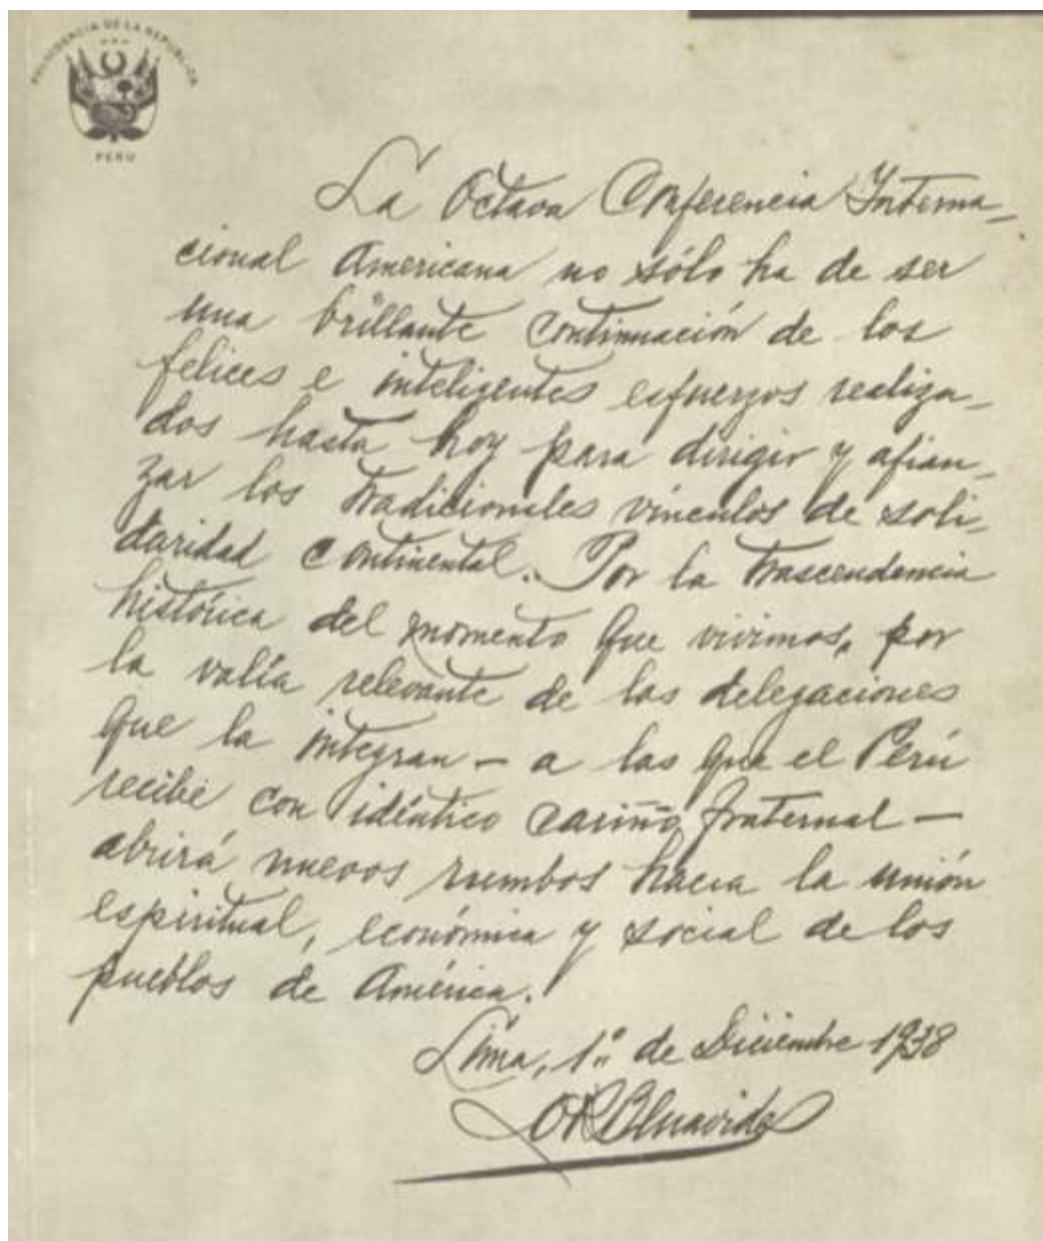 PRESIDENCIA DE LA REPUBLICA
PERU
La Octava Conferencia Interna-
cional Americana no sólo ha de ser
una brillante continuación de los
felices e inteligentes esfuerzos realiza-
dos hasta hoy para dirigir y afian-
zar los tradicionales vínculos de soli-
daridad continental. Por la trascendencia
histórica del momento que vivimos, por
la valía relevante de las delegaciones
que la integran – a las que el Perú
recibe con idéntico cariño fraternal –
abrirá nuevos rumbos hacia la unión
espiritual, económica y social de los
pueblos de América.
Lima, 1º de Diciembre 1938
OR Benavides